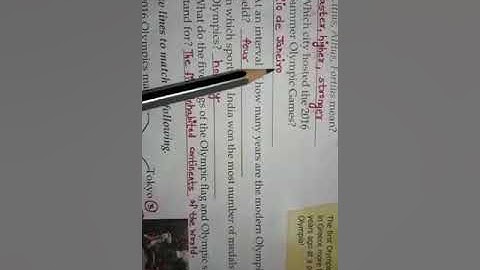 Citius, Altius, Fortius mean?
faster, higher, stronger
Which city hosted the 2016
summer Olympic Games?
Rio de Janeiro
At an interval how many years are the modern Olymp
eld? four
n which sport India won the most number of medals
Olympics? ho
What do the five gs of the Olympic flag and Olympic s
tand for? The inhabited continents of the World.
w lines to match following.
016 Olympics Tokyo
The first Olymp
in Greece more
years ago at a p
Olympia